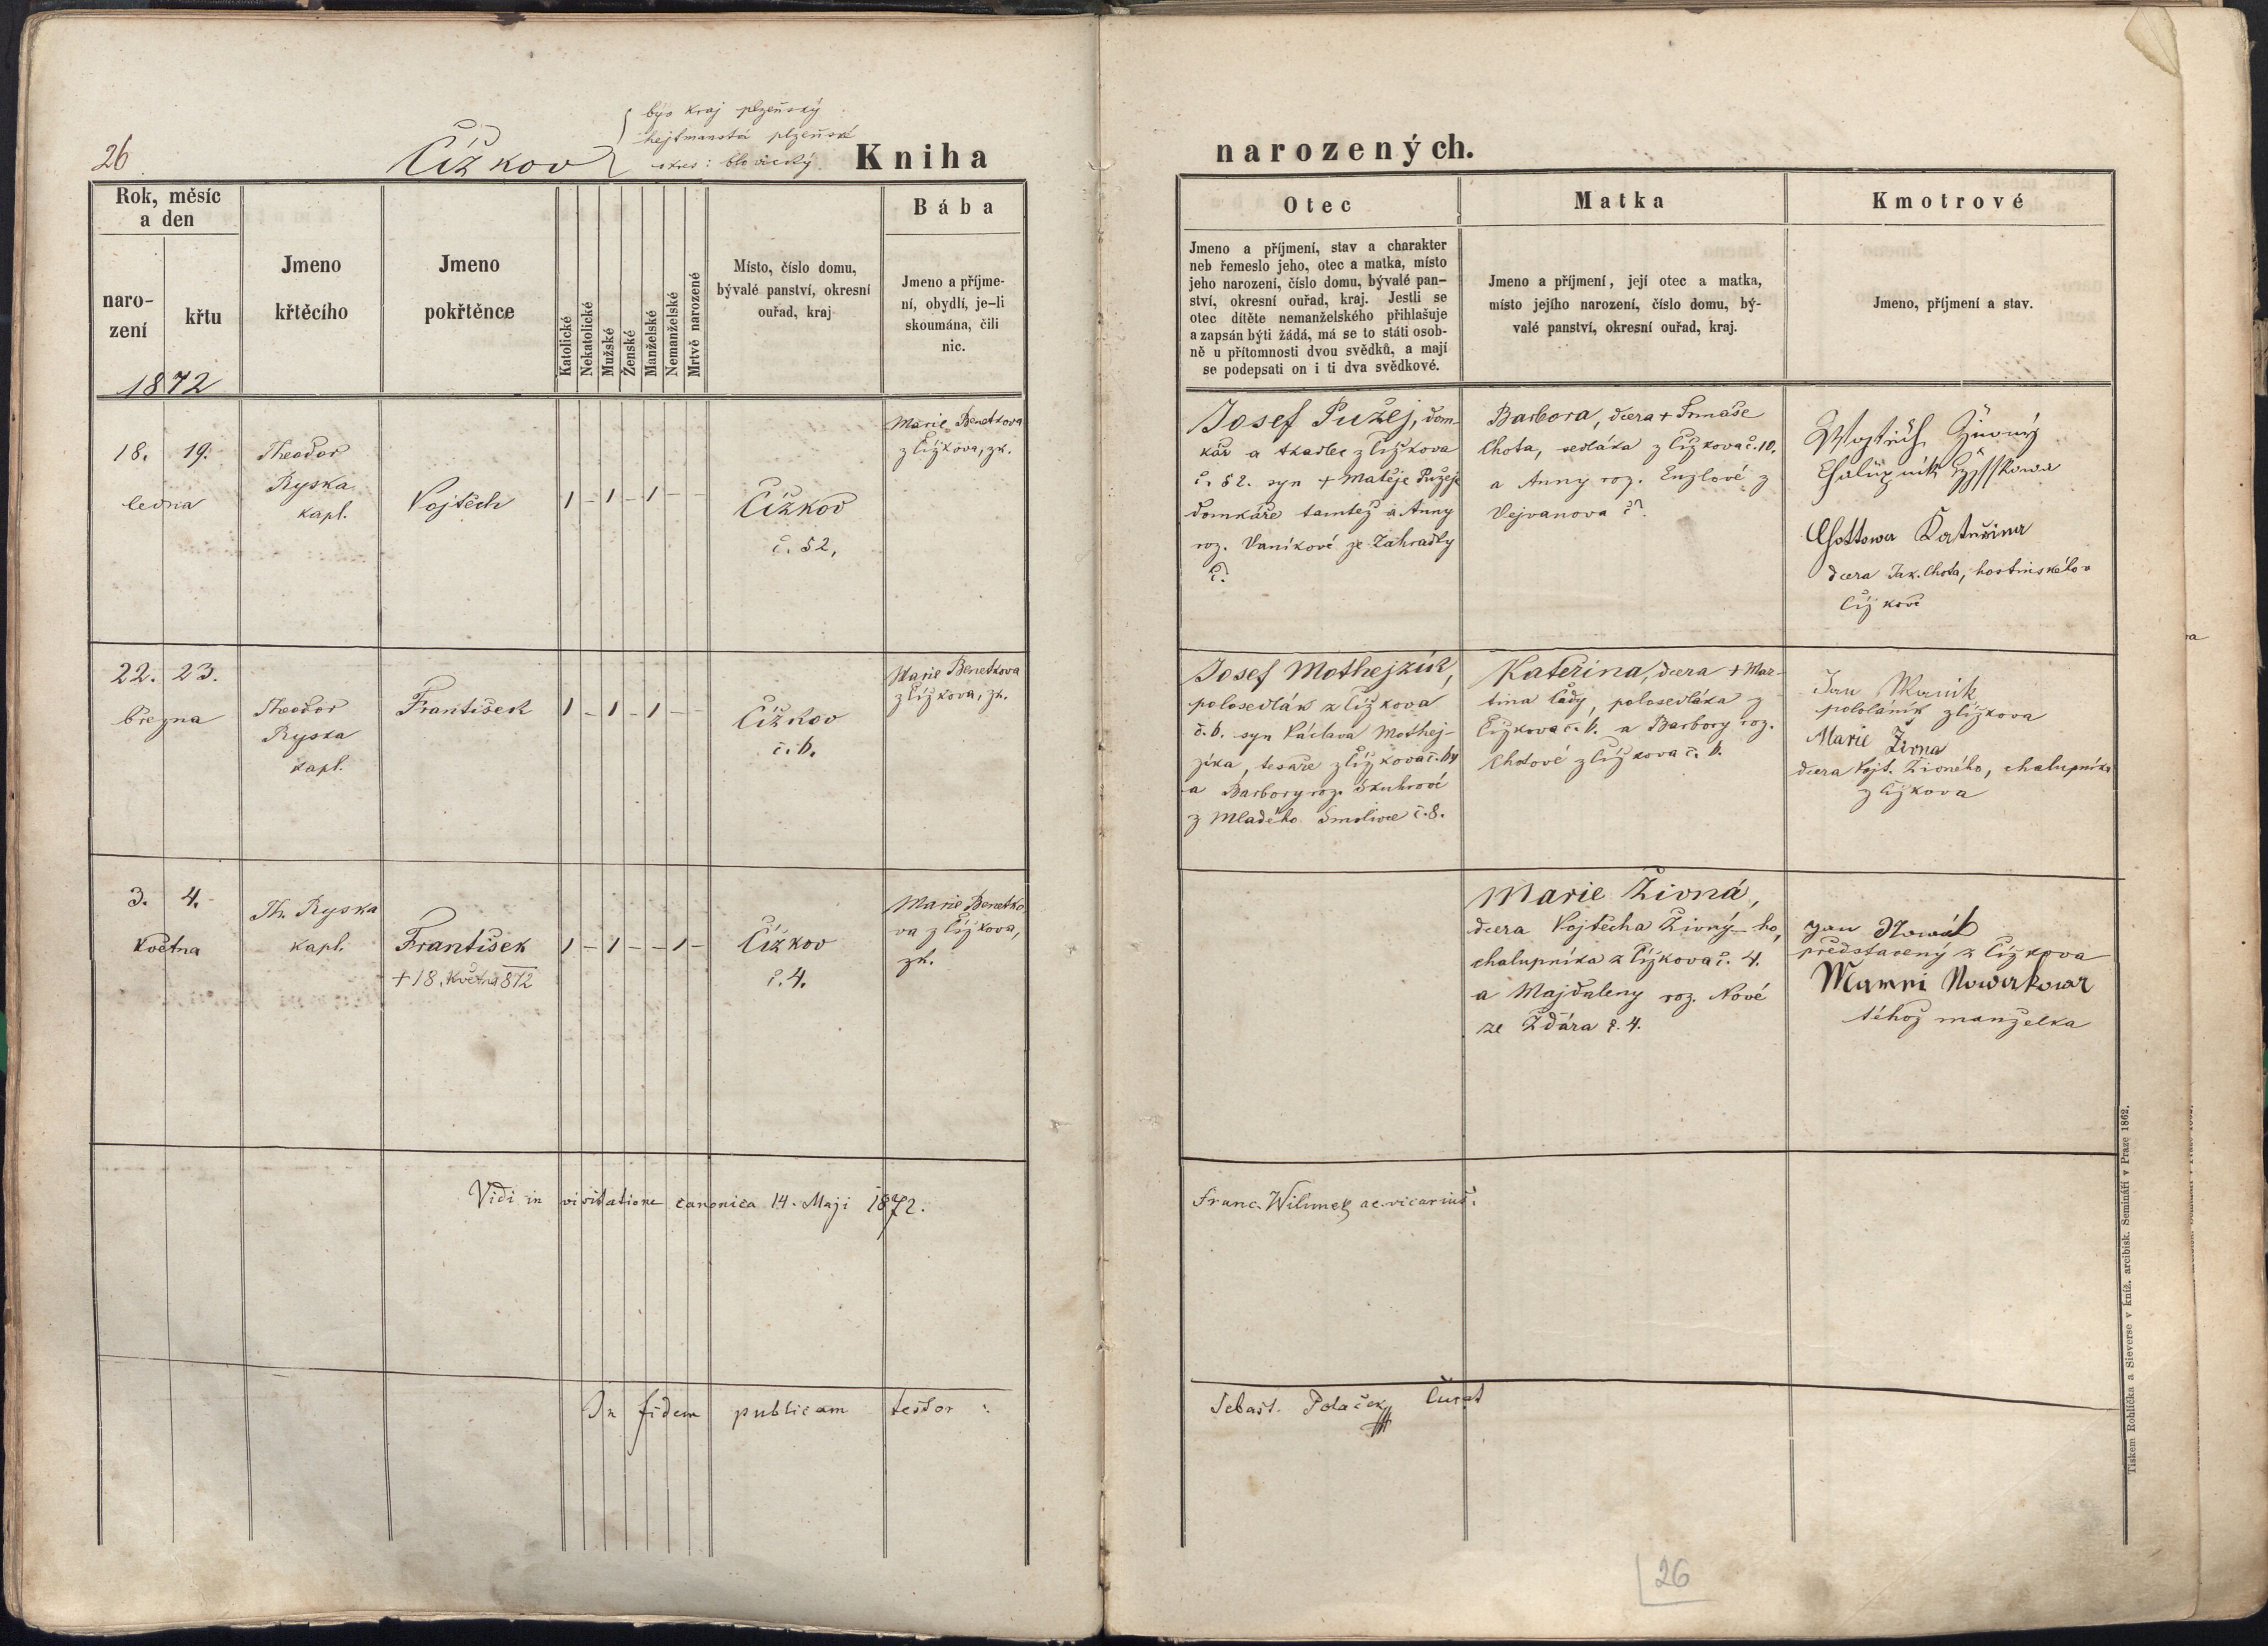 26
Čížkov
býv kraj plzeňský
hejtmanství plzeňské
okres: blovický
Kniha
narozených.
Rok, měsíc
a den
naro-
zení
křtu
1872
Jmeno
křtěcího
Jmeno
pokřtěnce
Katolické
Nekatolické
Mužské
Ženské
Manželské
Nemanželské
Mrtvě narozené
Místo, číslo domu,
bývalé panství, okresní
ouřad, kraj
Bába
Jmeno a příjme-
ní, obydlí, je-li
skoumána, čili
nic.
Otec
Jmeno a příjmení, stav a charakter
neb řemeslo jeho, otec a matka, místo
jeho narození, číslo domu, bývalé pan-
ství, okresní ouřad, kraj. Jestli se
otec dítěte nemanželského přihlašuje
a zapsán býti žádá, má se to státi osob-
ně u přítomnosti dvou svědků, a mají
se podepsati on i ti dva svědkové.
Matka
Jmeno a příjmení, její otec a matka,
místo jejího narození, číslo domu, bý-
valé panství, okresní ouřad, kraj.
Kmotrové
Jmeno, příjmení a stav.
18. 19.
ledna
Theodor
Ryska
kapl.
Vojtěch
1 - 1 - 1 - -
Čížkov
č. 52,
Marie Benetkova
z Čížkova, zk.
Josef Pužej, dom-
kář a tkadlec z Čížkova
č. 52. syn + Matěje Pužeje
domkáře tamtéž a Anny
roz. Vaníkové ze Zahrádky
č.
Barbora, dcera + Tomáše
Chota, sedláka z Čížkova č. 10.
a Anny roz. Englové z
Vejvanova č.
Wojtěch Žiwný
Chalupník
Chottowa Kateřina
dcera Jak. Chota, hostinského v
Čížkově
22. 23.
března
Theodor
Ryska
kapl.
František
1 - 1 - 1 - -
Čížkov
č. 6.
Marie Benetkova
z Čížkova, zk.
Josef Mothejzík,
polosedlák z Čížkova
č. 6. syn Václava Mothej-
zíka, tesaře z Čížkova č.
a Barbory roz. Škuhrové
z Mladého Smolivce č. 8.
Kateřina, dcera + Mar-
tina Čády, polosedláka z
Čížkova č. 6. a Barbory roz.
Chotové z Čížkova č. 6.
Jan
pololáník z Čížkova
Marie Živna
dcera Vojt. Živného, chalupníka
z Čížkova
3. 4.
Května
Th. Ryska
kapl.
František
+ 18. Května 872
1 - 1 - - 1 -
Čížkov
č. 4.
Marie Benetko
va z Čížkova,
zk.
Marie Živná,
dcera Vojtěcha Živný-ho,
chalupníka z Čížkova č. 4.
a Majdaleny roz. Nové
ze Žďára č. 4.
Jan Nowák
představený z Čížkova
Nowakowa
téhož manželka
Vidi in visitatione canonica 14. Maji 1872.
Franc. Wilimek ae. vicarius.
In fidem publicam testor:
Sebast. Polaček Curat
26
Tiskem Rohlíčka a Sieverse v kníž. arcibisk. Semináři v Praze 1862.